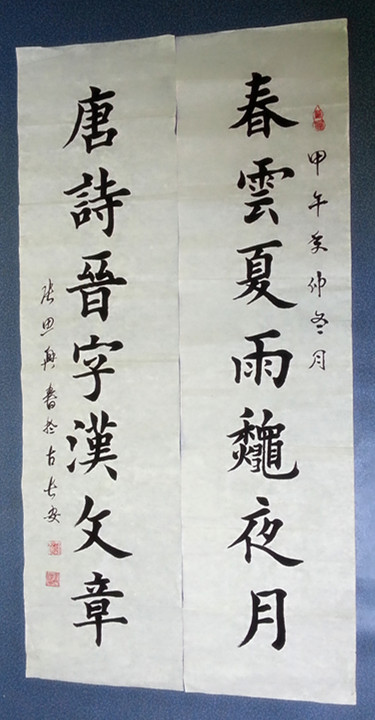 甲午仲冬月
春雲夏雨龝夜月
唐詩晉字漢文章
張思興書於古長安